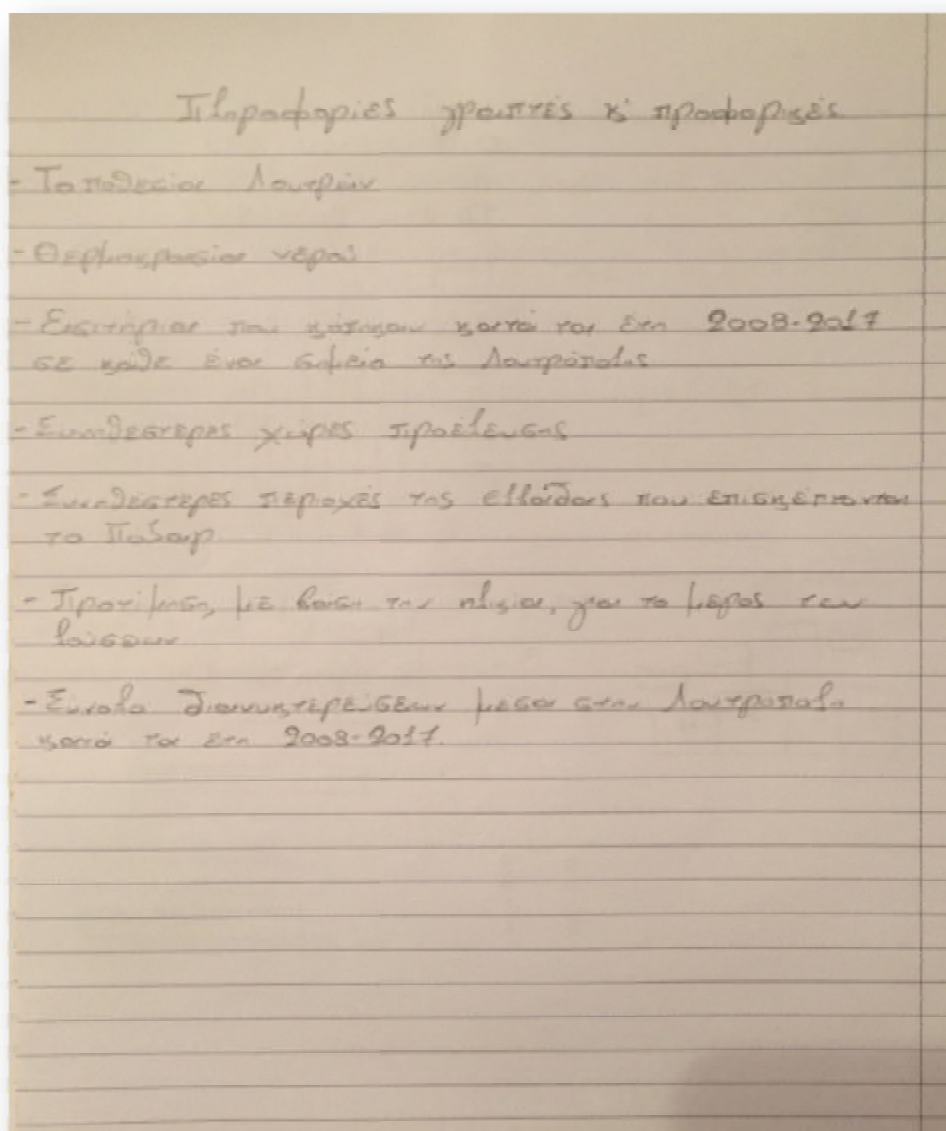 Πληροφορίες γραπτές κ' προφορικές
- Τοποθεσία Λουτρών
- Θερμοκρασία νερού
- Εισιτήρια που κόπηκαν κατά τα έτη 2008-2017
σε κάθε ένα σημείο της Λουτρόπολης
- Συνηθέστερες χώρες προέλευσης
- Συνηθέστερες περιοχές της Ελλάδας που επισκέπτονται
το Πόζαρ
- Προτίμηση, με βάση την ηλικία, για το μέρος των
λούσεων
- Σύνολο διανυκτερεύσεων μέσα στην Λουτρόπολη
κατά τα έτη 2008-2017.